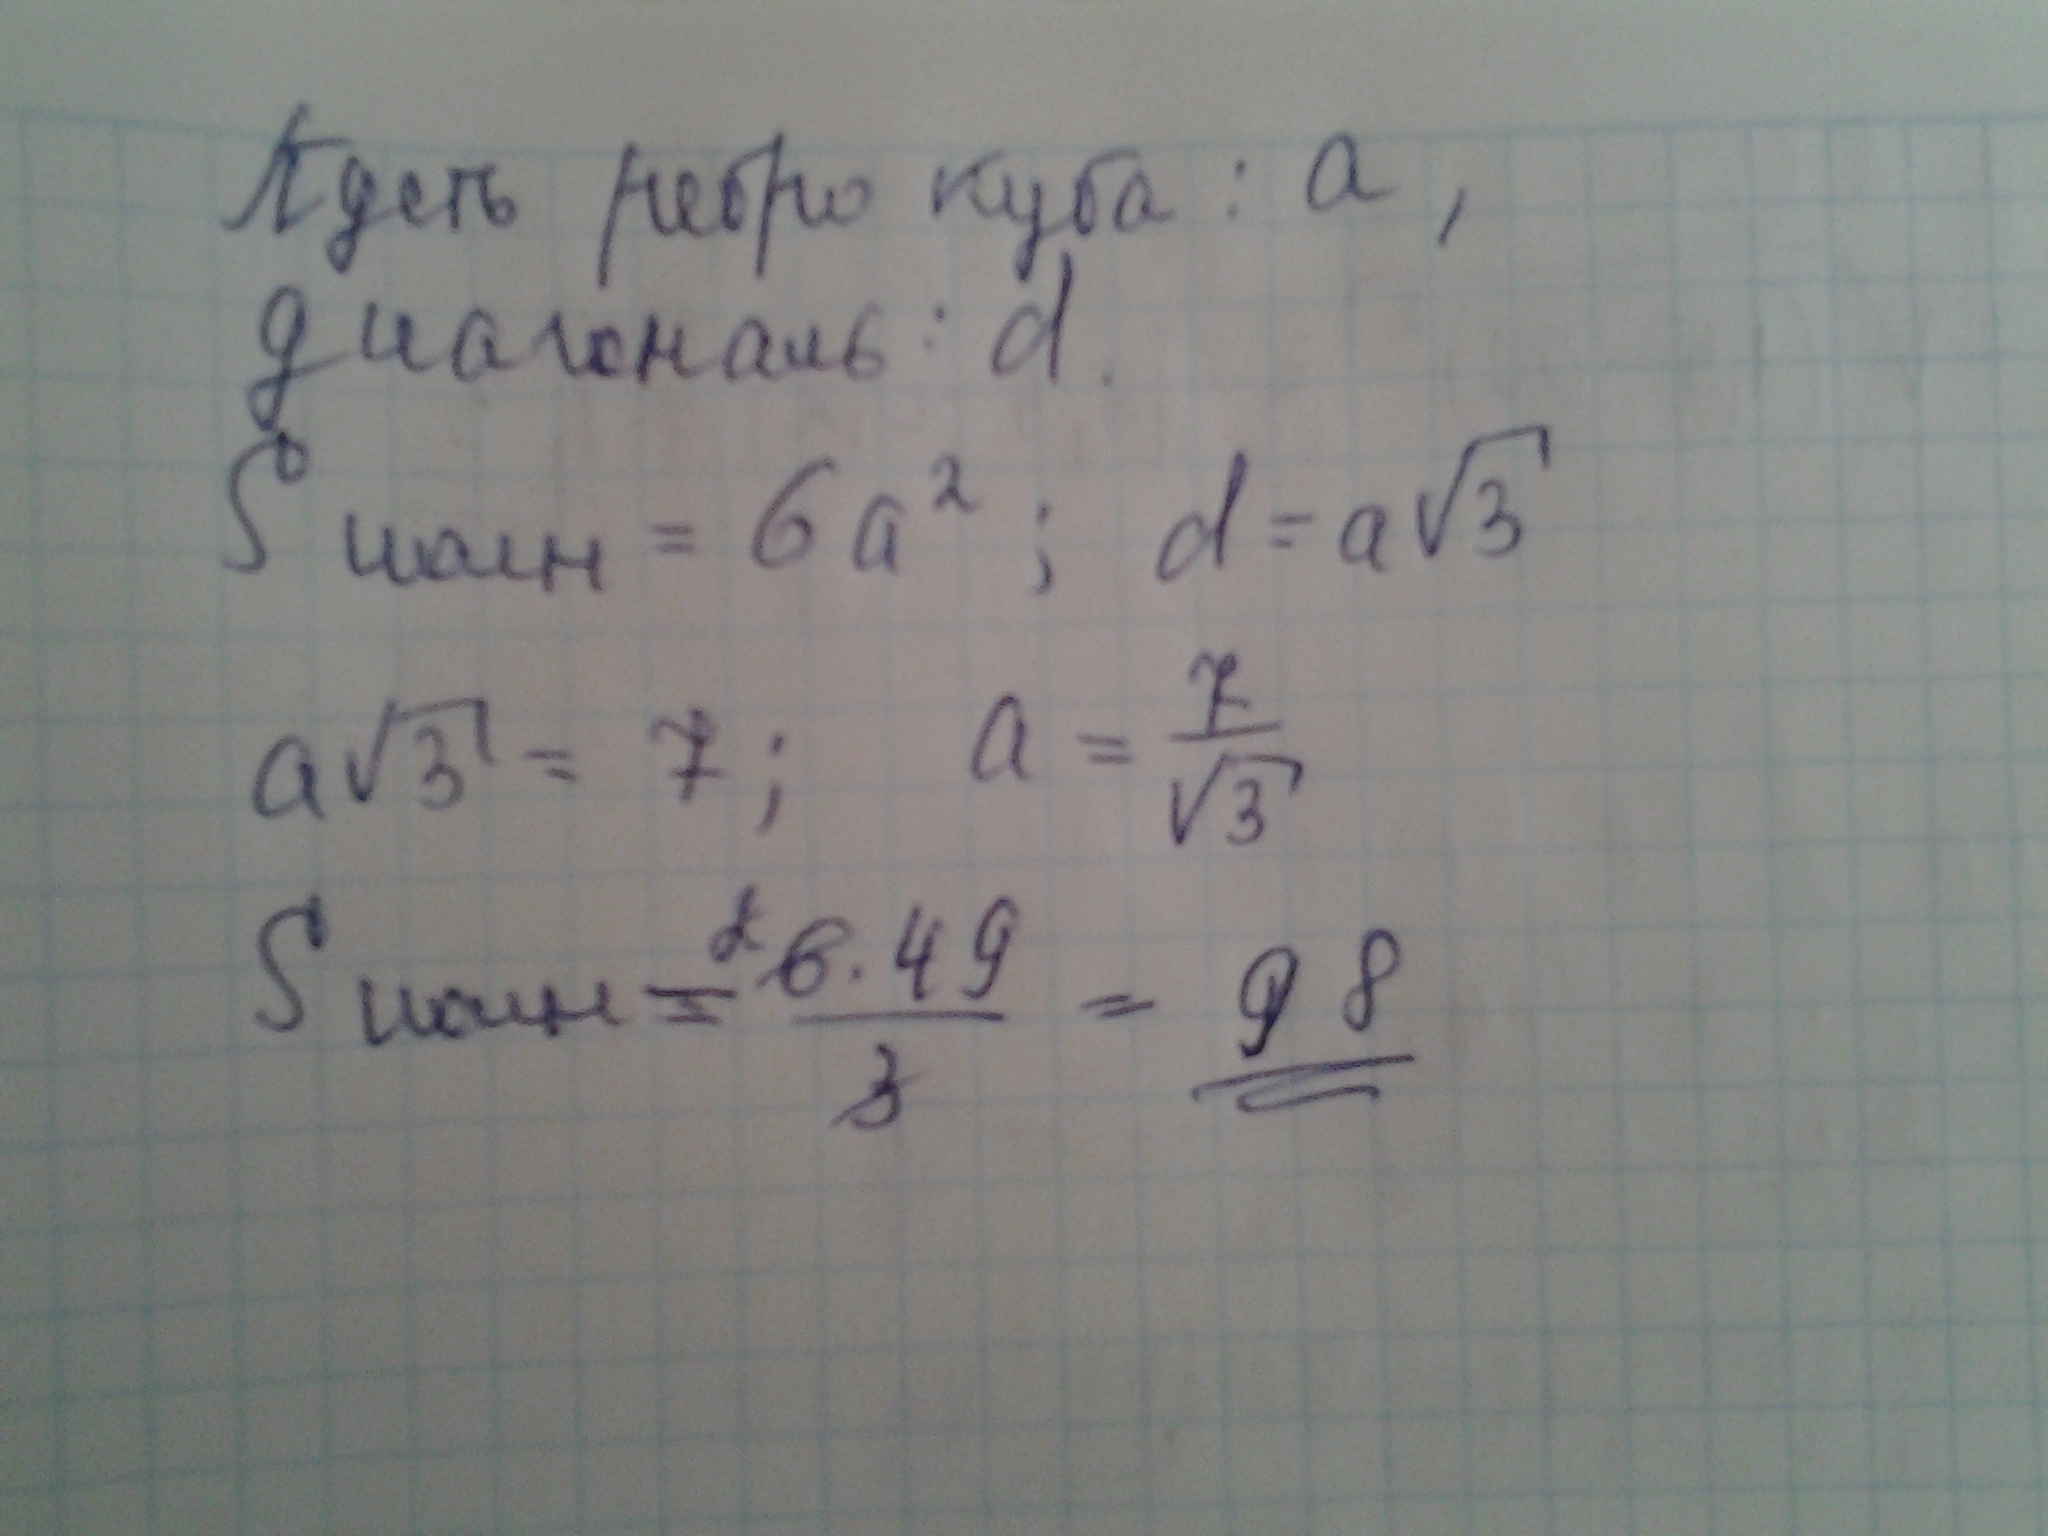 Пусть ребро куба : a ,
диагональ : d .
S полн = 6a² ; d = a√3
a√3 = 7 ; a = 7/√3
S полн = ²6·49/3 = 98